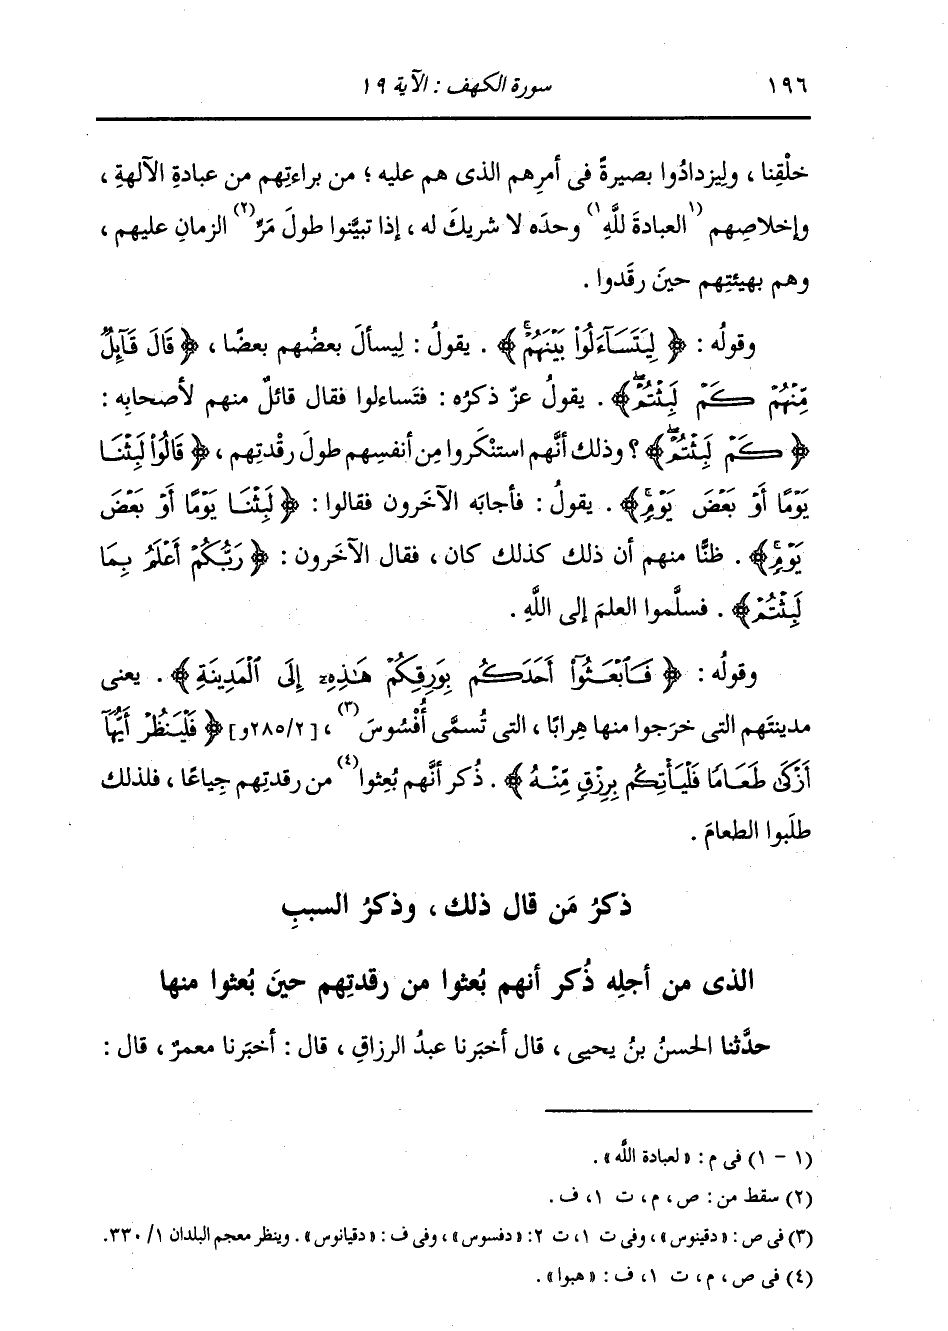 ١٩٦ سورة الكهف : الآية ١٩
خلْقِنا ، ولِيزدادُوا بصيرةً فى أمرِهم الذى هم عليه ؛ من براءتِهم من عبادةِ الآلهةِ ،
وإخلاصِهم (١العبادةَ للَّهِ١) وحدَه لا شريكَ له ، إذا تبيَّنوا طولَ مَرِّ(٢) الزمانِ عليهم ،
وهم بهيئتِهم حينَ رقَدوا .
وقولُه : ﴿ لِيَتَسَآءَلُواْ بَيْنَهُمْۚ﴾ . يقولُ : لِيسألَ بعضُهم بعضًا ، ﴿ قَالَ قَآئِلٌ
مِّنْهُمْ كَمْ لَبِثْتُمْۖ﴾ . يقولُ عزّ ذكرُه : فتَساءلوا فقال قائلٌ منهم لأصحابِه :
﴿ كَمْ لَبِثْتُمْۖ﴾ ؟ وذلك أنَّهم استنْكَروا مِن أنفسِهم طولَ رقْدتِهم ، ﴿ قَالُواْ لَبِثْنَا
يَوْمًا أَوْ بَعْضَ يَوْمٍۚ﴾ . يقولُ : فأجابَه الآخَرون فقالوا : ﴿ لَبِثْنَا يَوْمًا أَوْ بَعْضَ
يَوْمٍۚ﴾ . ظنًّا منهم أن ذلك كذلك كان ، فقال الآخَرون : ﴿ رَبُّكُمْ أَعْلَمُ بِمَا
لَبِثْتُمْ﴾ . فسلَّموا العلمَ إلى اللَّهِ .
وقولُه : ﴿ فَٱبْعَثُوٓاْ أَحَدَكُم بِوَرِقِكُمْ هَٰذِهِۦٓ إِلَى ٱلْمَدِينَةِ﴾ . يعنى
مدينتَهم التى خرَجوا منها هِرابًا ، التى تُسمَّى أُفْسُوسَ(٣) ، [٢٨٥/٢و] ﴿ فَلْيَنظُرْ أَيُّهَآ
أَزْكَىٰ طَعَامًا فَلْيَأْتِكُم بِرِزْقٍ مِّنْهُ﴾ . ذُكر أنَّهم بُعثوا(٤) من رقدتِهم جِياعًا ، فلذلك
طلَبوا الطعامَ .
ذكرُ مَن قال ذلك ، وذكرُ السببِ
الذى من أجلِه ذُكر أنهم بُعثوا من رقدتِهم حينَ بُعثوا منها
حدَّثنا الحسنُ بنُ يحيى ، قال أخبَرنا عبدُ الرزاقِ ، قال : أخبَرنا معمرٌ ، قال :
(١ - ١) فى م : «لعبادة اللَّه» .
(٢) سقط من : ص ، م ، ت ١، ف .
(٣) فى ص : «دقينوس» ، وفى ت ١، ت ٢: «دفسوس» ، وفى ف : «دقيانوس» . وينظر معجم البلدان ١/ ٣٣٠.
(٤) فى ص ، م ، ت ١، ف : «هبوا» .